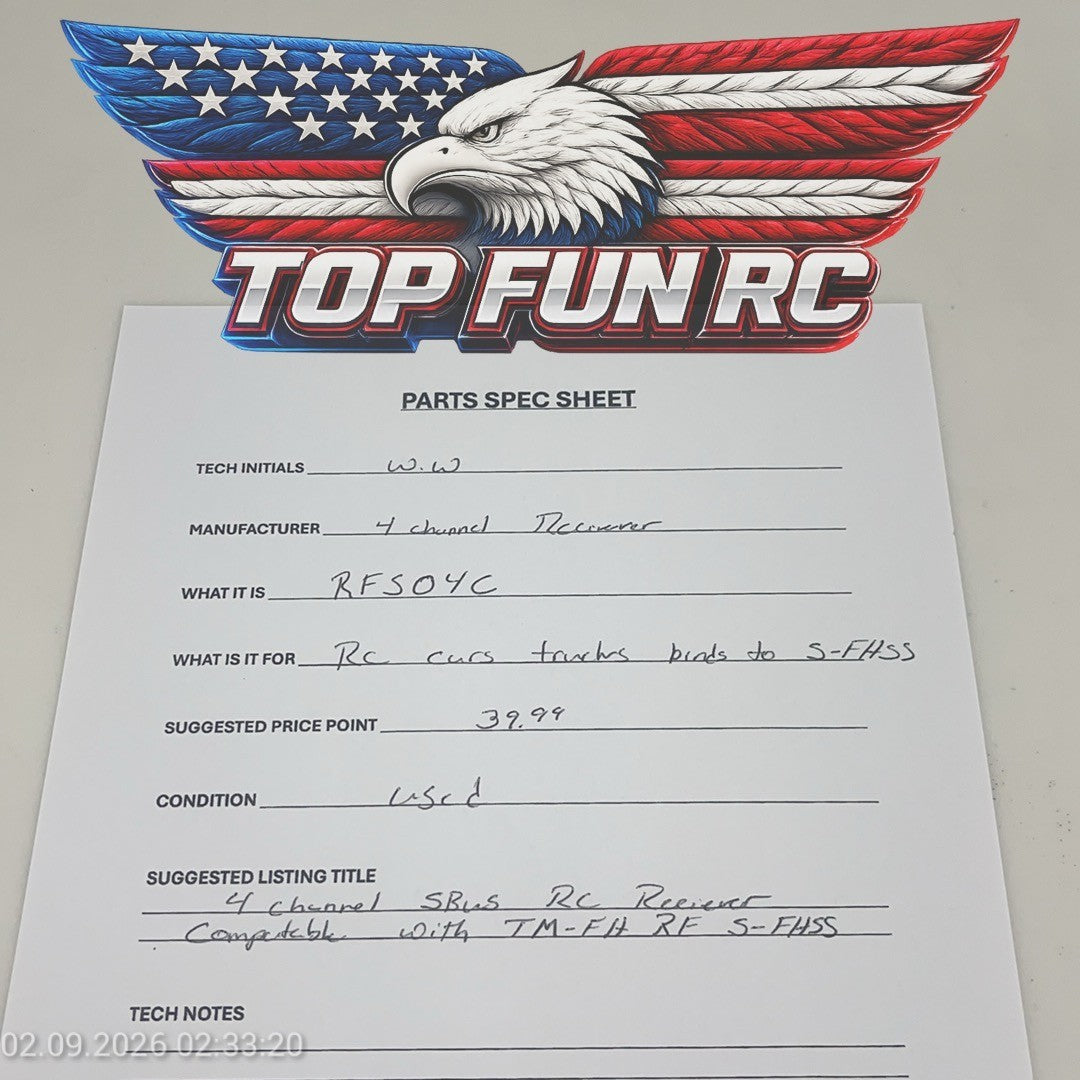 TOP FUN RC
PARTS SPEC SHEET
TECH INITIALS W.W
MANUFACTURER 4 channel Reciever
WHAT IT IS RFS04C
WHAT IS IT FOR Rc cars trucks binds to S-FHSS
SUGGESTED PRICE POINT 39.99
CONDITION used
SUGGESTED LISTING TITLE
4 channel SBus RC Reciever
Compatable with TM-FH RF S-FHSS
TECH NOTES
02.09.2026 02:33:20